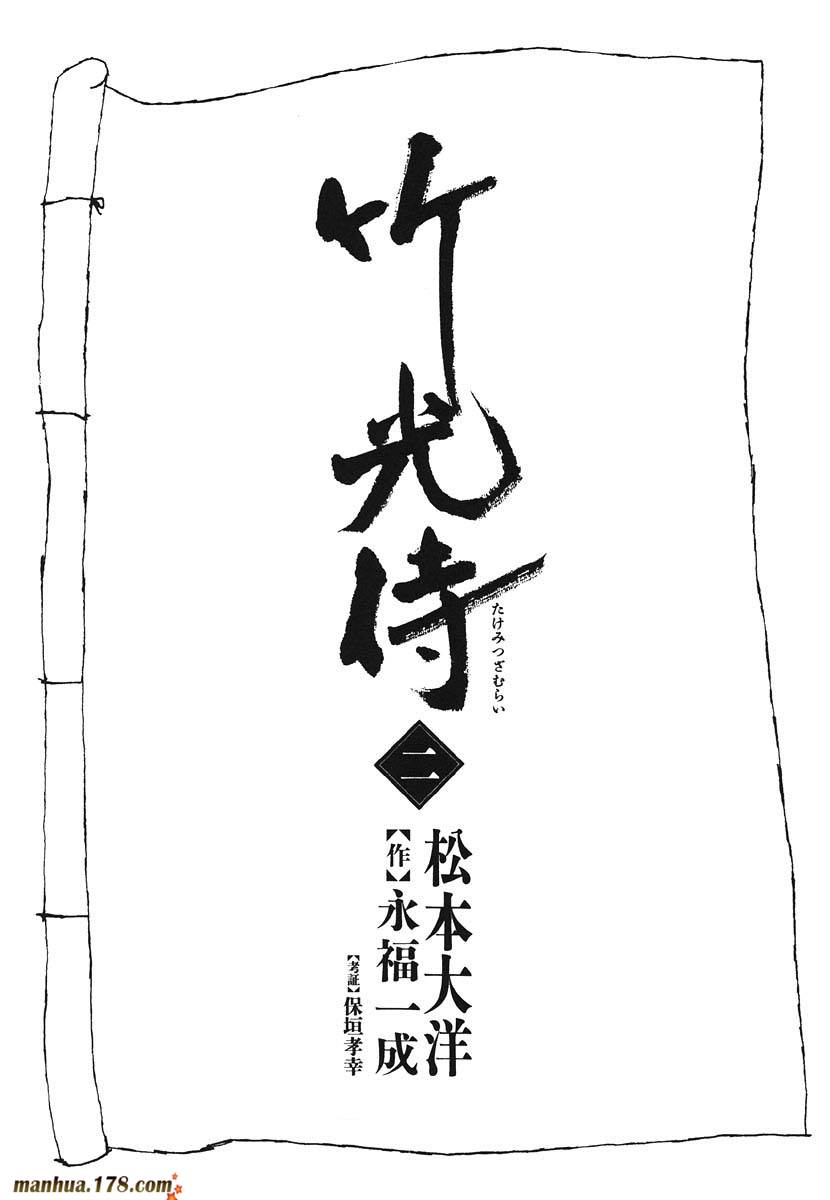 竹光侍
たけみつざむらい
二
松本大洋
【作】永福一成
【考証】保垣孝幸
manhua.178.com